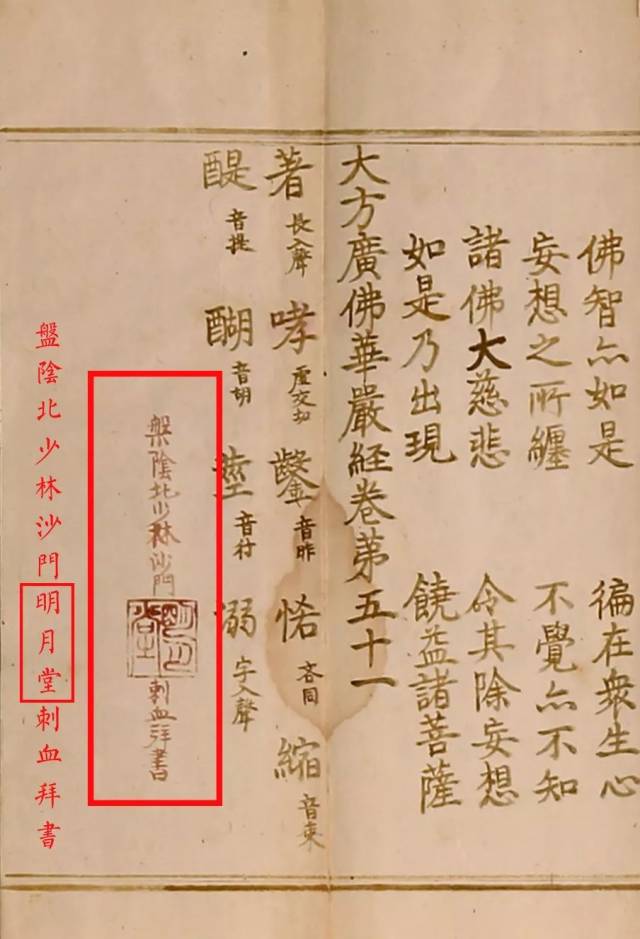 佛智亦如是 徧在衆生心
妄想之所纏 不覺亦不知
諸佛大慈悲 令其除妄想
如是乃出現 饒益諸菩薩
大方廣佛華嚴経卷第五十一
著 長入聲 哮 虛交切 鑿 音昨 悋 吝同 縮 音束
醍 音提 醐 音胡 音付 溺 字入聲
槃陰北少林沙門 明月堂 刺血拜書
盤陰北少林沙門明月堂刺血拜書